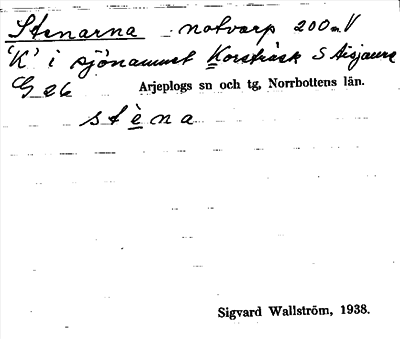 Stenarna notvarp 200 m V
'K' i sjönamnet Korsträsk S Aisjaure
G e6 Arjeplogs sn och tg, Norrbottens län.
stèna
Sigvard Wallström, 1938.